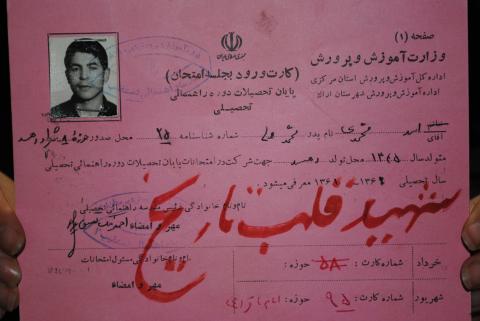 صفحه (۱)
وزارت آموزش و پرورش
اداره کل آموزش و پرورش استان مرکزی
اداره آموزش و پرورش شهرستان اراک
جمهوری اسلامی ایران
(کارت ورود بجلسه امتحان)
پایان تحصیلات دوره راهنمائی
تحصیلی
آقای اسد محمدی نام پدر شماره شناسنامه ۲۵ محل صدور
متولد سال ۱۳۴۵ محل تولد جهت شرکت در امتحانات پایان تحصیلات دوره راهنمائی تحصیلی
سال تحصیلی ۱۳۶۲ معرفی میشود
نام و نام خانوادگی رئیس مدرسه راهنمائی تحصیلی
مهر و امضاء
شهید قلب تاریخ
نام و نام خانوادگی مسئول امتحانات
مهر و امضاء
خرداد شماره کارت: ۵۸ حوزه:
شهریور شماره کارت: ۹۵ حوزه: